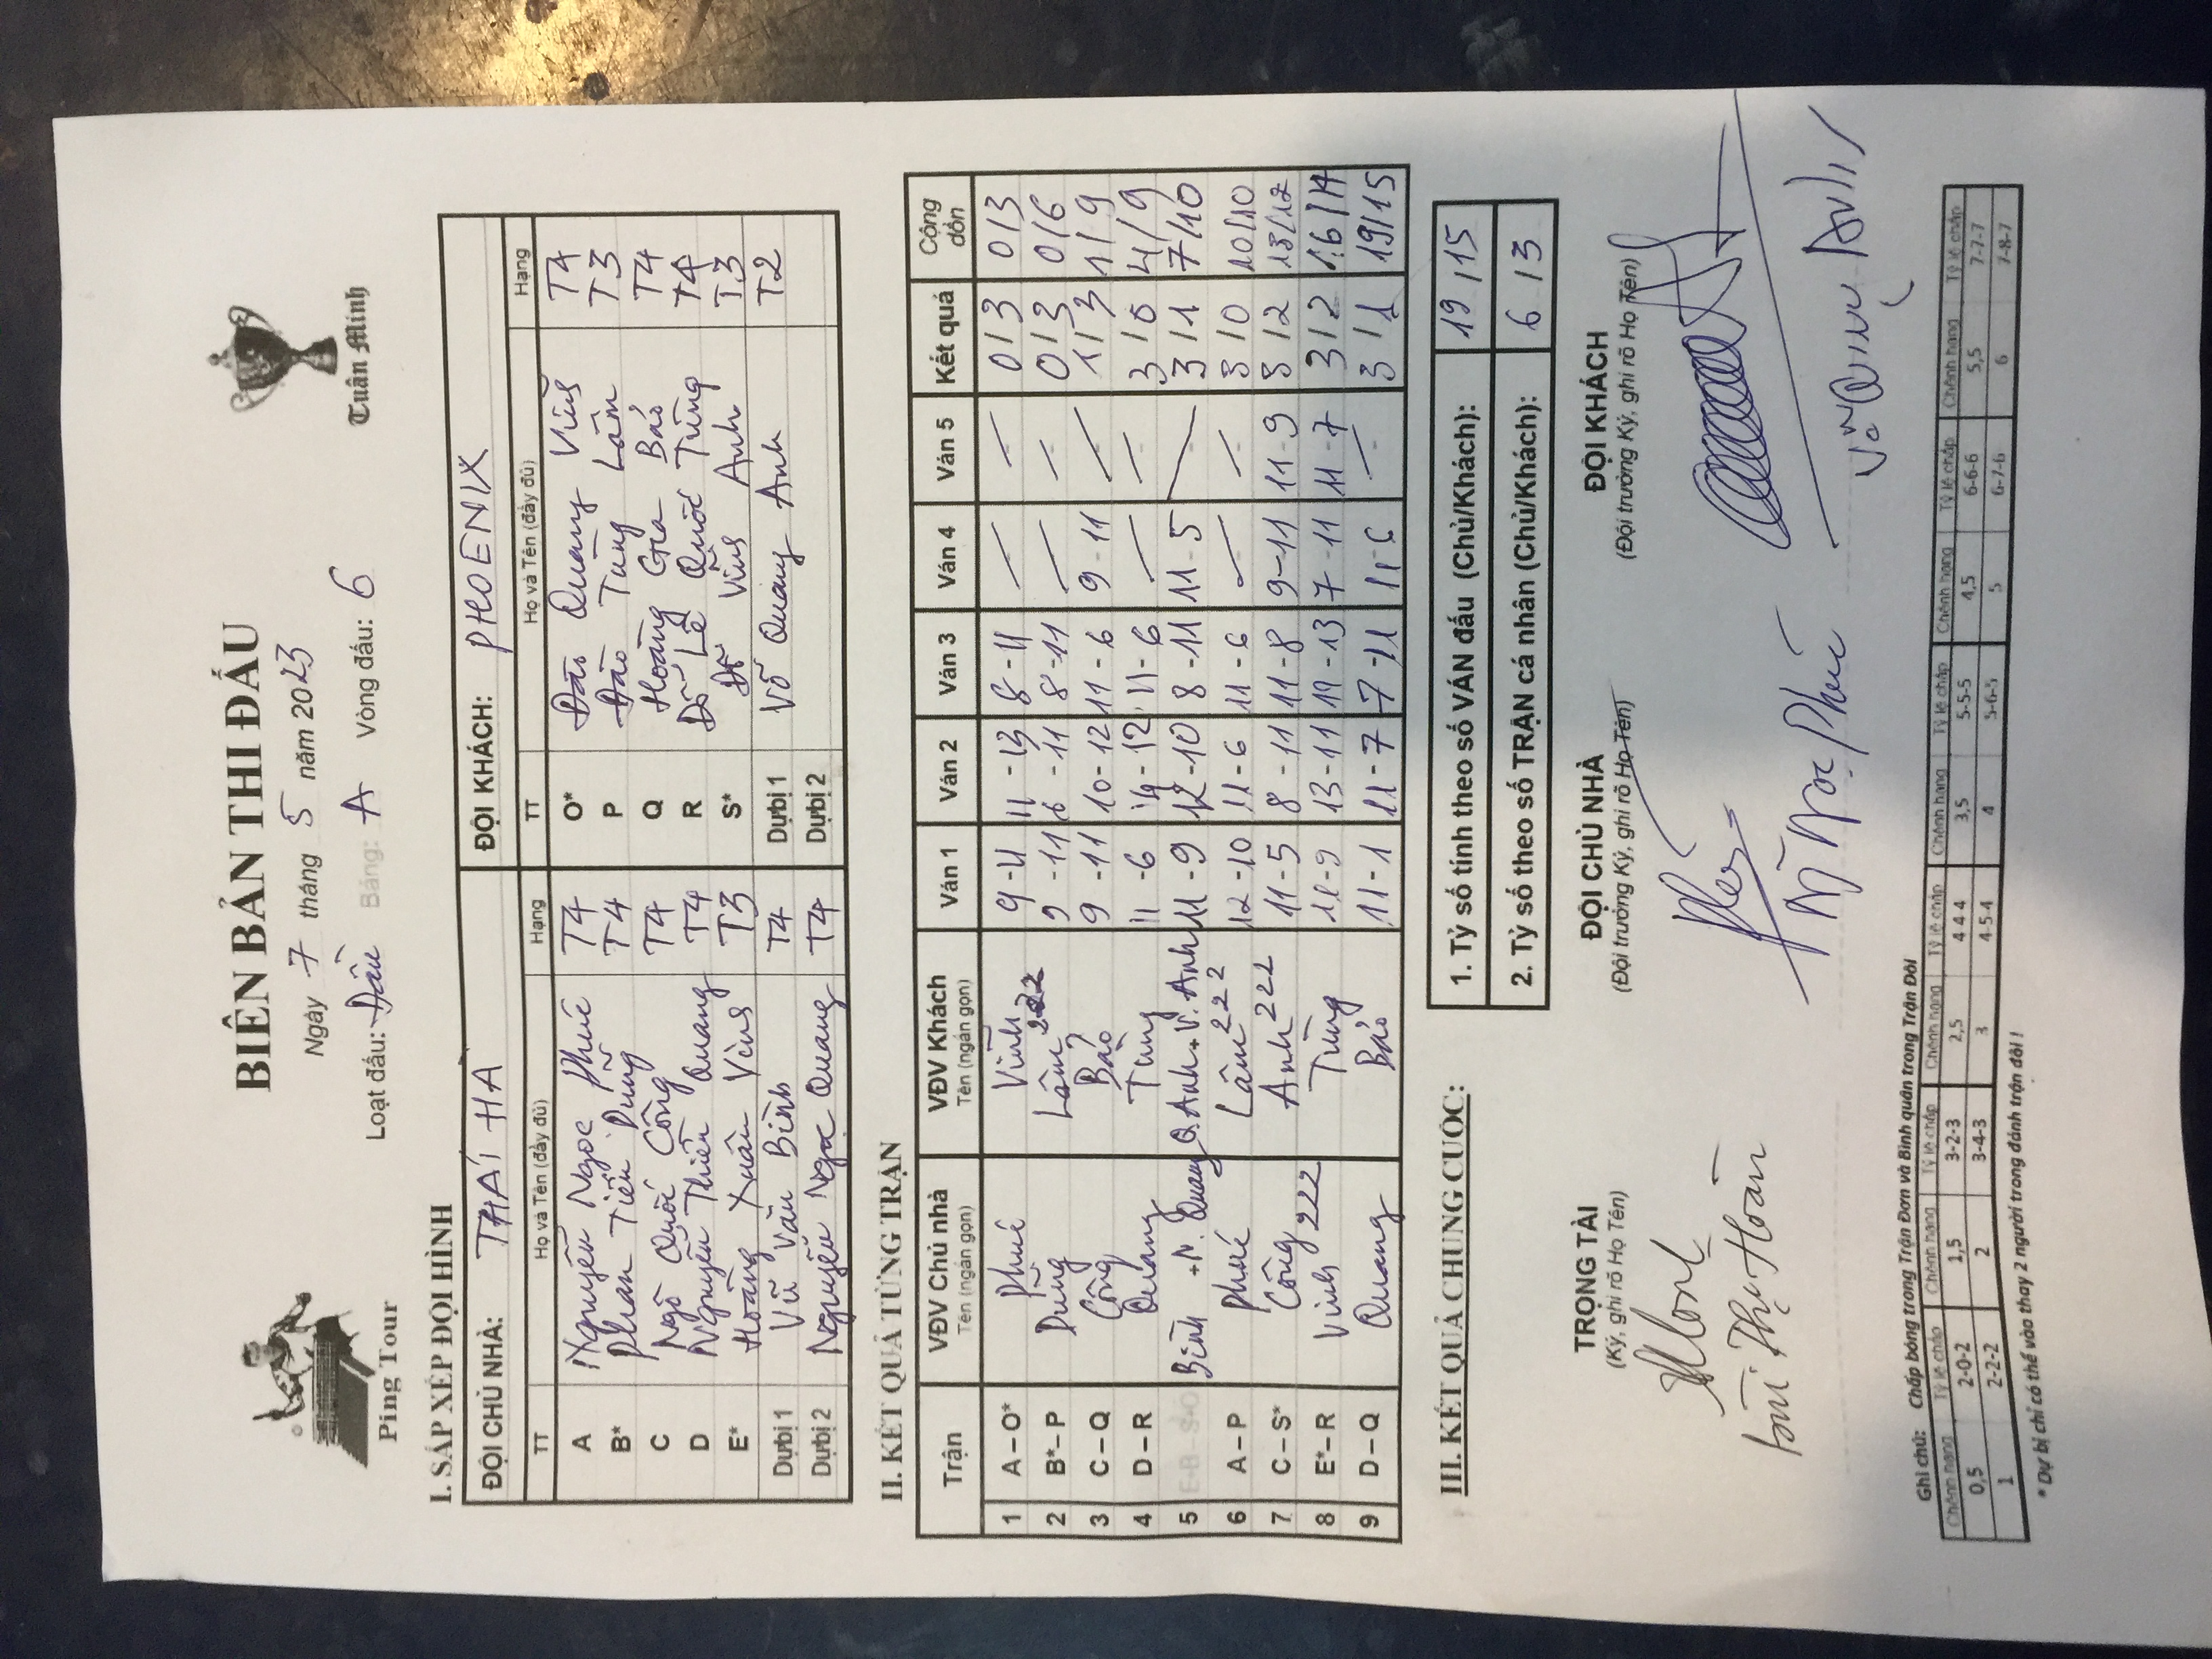 Ping Tour
BIÊN BẢN THI ĐẤU
Tuấn Minh
Ngày 7 tháng 5 năm 2023
Loạt đấu: Đầu Bảng: A Vòng đấu: 6
I. SẮP XẾP ĐỘI HÌNH
ĐỘI CHỦ NHÀ: THÁI HÀ ĐỘI KHÁCH: PHOENIX
TT Họ và Tên (đầy đủ) Hạng TT Họ và Tên (đầy đủ) Hạng
A Nguyễn Ngọc Phúc T4 O* Đào Quang Vinh T4
B* Phan Tiến Dũng T4 P Đào Tùng Lâm T3
C Ngô Quốc Công T4 Q Hoàng Gia Bảo T4
D Nguyễn Thiên Quang T4 R Đỗ Lê Quốc Tùng T4
E* Hoàng Xuân Vinh T3 S* Đỗ Vinh Anh T3
Dự bị 1 Vũ Văn Bình T4 Dự bị 1 Võ Quang Anh T2
Dự bị 2 Nguyễn Ngọc Quang T4 Dự bị 2
II. KẾT QUẢ TỪNG TRẬN
Trận VĐV Chủ nhà VĐV Khách Ván 1 Ván 2 Ván 3 Ván 4 Ván 5 Kết quả Cộng dồn
Tên (ngắn gọn) Tên (ngắn gọn)
1 A – O* Phúc Vinh 9-11 11-13 8-11 — — 0/3 0/3
2 B* – P Dũng Lâm 222 9-11 6-11 8-11 — — 0/3 0/6
3 C – Q Công Bảo 9-11 10-12 11-6 9-11 — 1/3 1/9
4 D – R Quang Tùng 11-6 14-12 11-6 — — 3/0 4/9
5 E+B – S+O Bình + N. Quang Q. Anh + V. Anh 11-9 12-10 8-11 11-5 — 3/1 7/10
6 A – P Phúc Lâm 222 12-10 11-6 11-6 — — 3/0 10/10
7 C – S* Công Anh 222 11-5 8-11 11-8 9-11 11-9 3/2 13/12
8 E* – R Vinh 222 Tùng 11-9 13-11 11-13 7-11 11-7 3/2 16/14
9 D – Q Quang Bảo 11-1 11-7 7-11 11-6 — 3/1 19/15
III. KẾT QUẢ CHUNG CUỘC:
1. Tỷ số tính theo số VÁN đấu (Chủ/Khách): 19/15
2. Tỷ số theo số TRẬN cá nhân (Chủ/Khách): 6/3
TRỌNG TÀI ĐỘI CHỦ NHÀ ĐỘI KHÁCH
(Ký, ghi rõ Họ Tên) (Đội trưởng Ký, ghi rõ Họ Tên) (Đội trưởng Ký, ghi rõ Họ Tên)
Ng Ngọc Phúc
Ghi chú: Chấp bóng trong Trận Đơn và Bình quân trong Trận Đôi
Chênh hạng Tỷ lệ chấp Chênh hạng Tỷ lệ chấp Chênh hạng Tỷ lệ chấp Chênh hạng Tỷ lệ chấp Chênh hạng Tỷ lệ chấp Chênh hạng Tỷ lệ chấp
0,5 2-0-2 1,5 3-2-3 2,5 4 4 4 3,5 5-5-5 4,5 6-6-6 5,5 7-7-7
1 2-2-2 2 3-4-3 3 4-5-4 4 5-6-5 5 6-7-6 6 7-8-7
* Dự bị chỉ có thể vào thay 2 người trong đánh trận đôi !